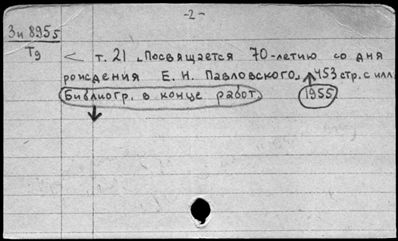 -2-
Зи 8955
Т9
< т. 21 „Посвящается 70-летию со дня
рождения Е. Н. Павловского„ 453 стр. с илл.
Библиогр. в конце работ. 1955